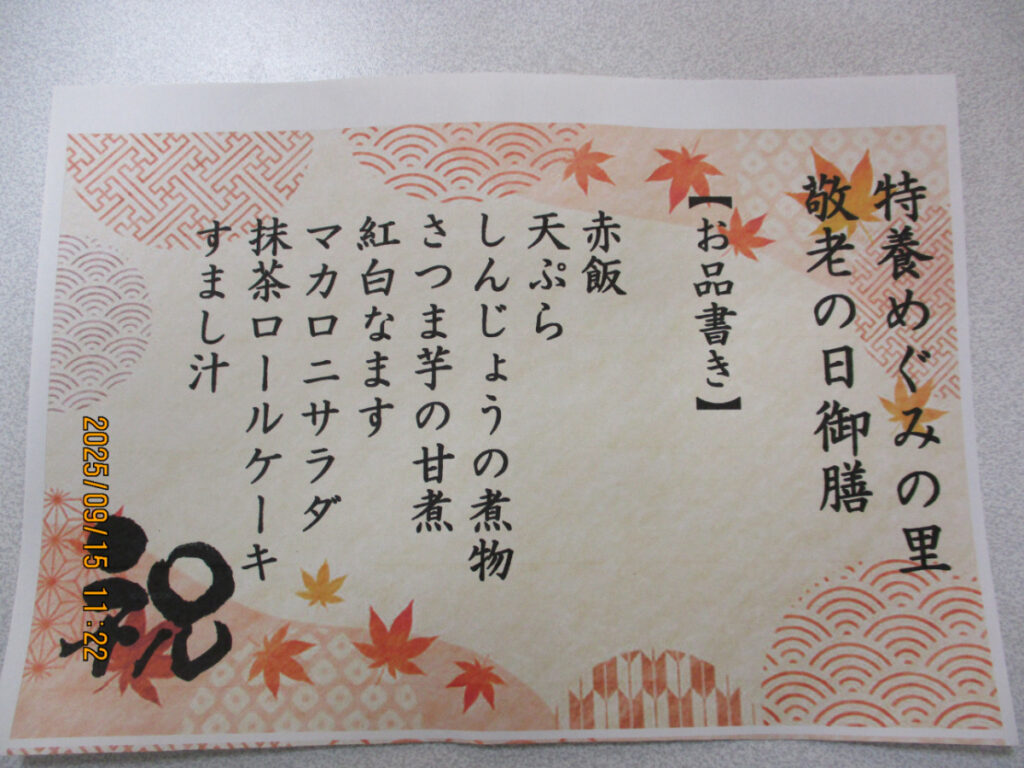 特養めぐみの里
敬老の日御膳
【お品書き】
赤飯
天ぷら
しんじょうの煮物
さつま芋の甘煮
紅白なます
マカロニサラダ
抹茶ロールケーキ
すまし汁
祝
2025/09/15 11:22